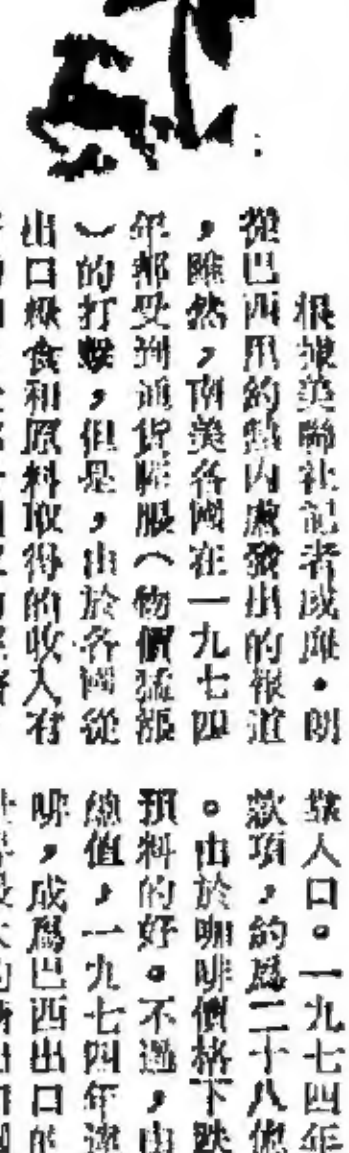 根據美聯社記者威廉・朗
從巴西里約熱內盧發出的報道
，雖然，南美各國在一九七四
年都受到通貨膨脹（物價猛漲
）的打擊，但是，由於各國從
出口糧食和原料取得的收入有
靠人口。一九七四年
款項，約爲二十八億
。由於咖啡價格下跌
預料的好。不過，由
總值，一九七四年達
啡，成爲巴西出口的